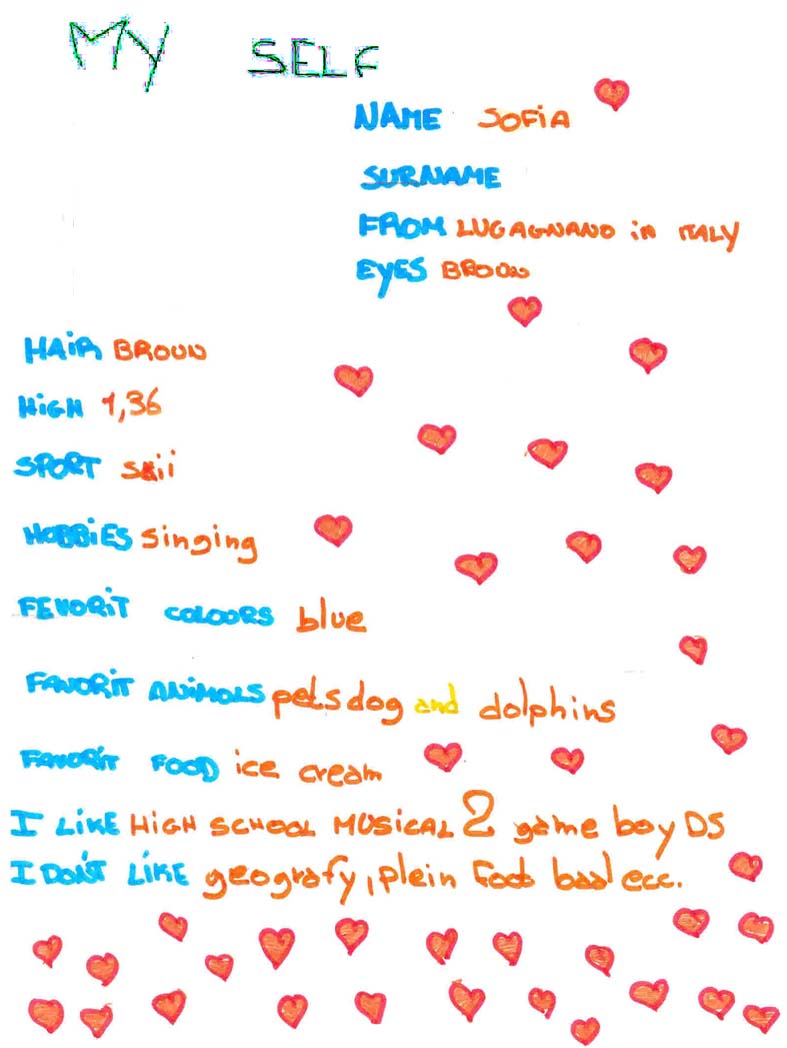 MY SELF
NAME SOFIA
SURNAME
FROM LUGAGNANO in ITALY
EYES BROUN
HAIR BROUN
HIGH 1,36
SPORT skii
HOBBIES singing
FEVORIT COLOORS blue
FAVORIT ANIMOLS pets dog and dolphins
FAVORIT FOOD ice cream
I LIKE HIGH SCHOOL MUSICAL 2 game boy DS
I DON'T LIKE geografy, plein food bad ecc.